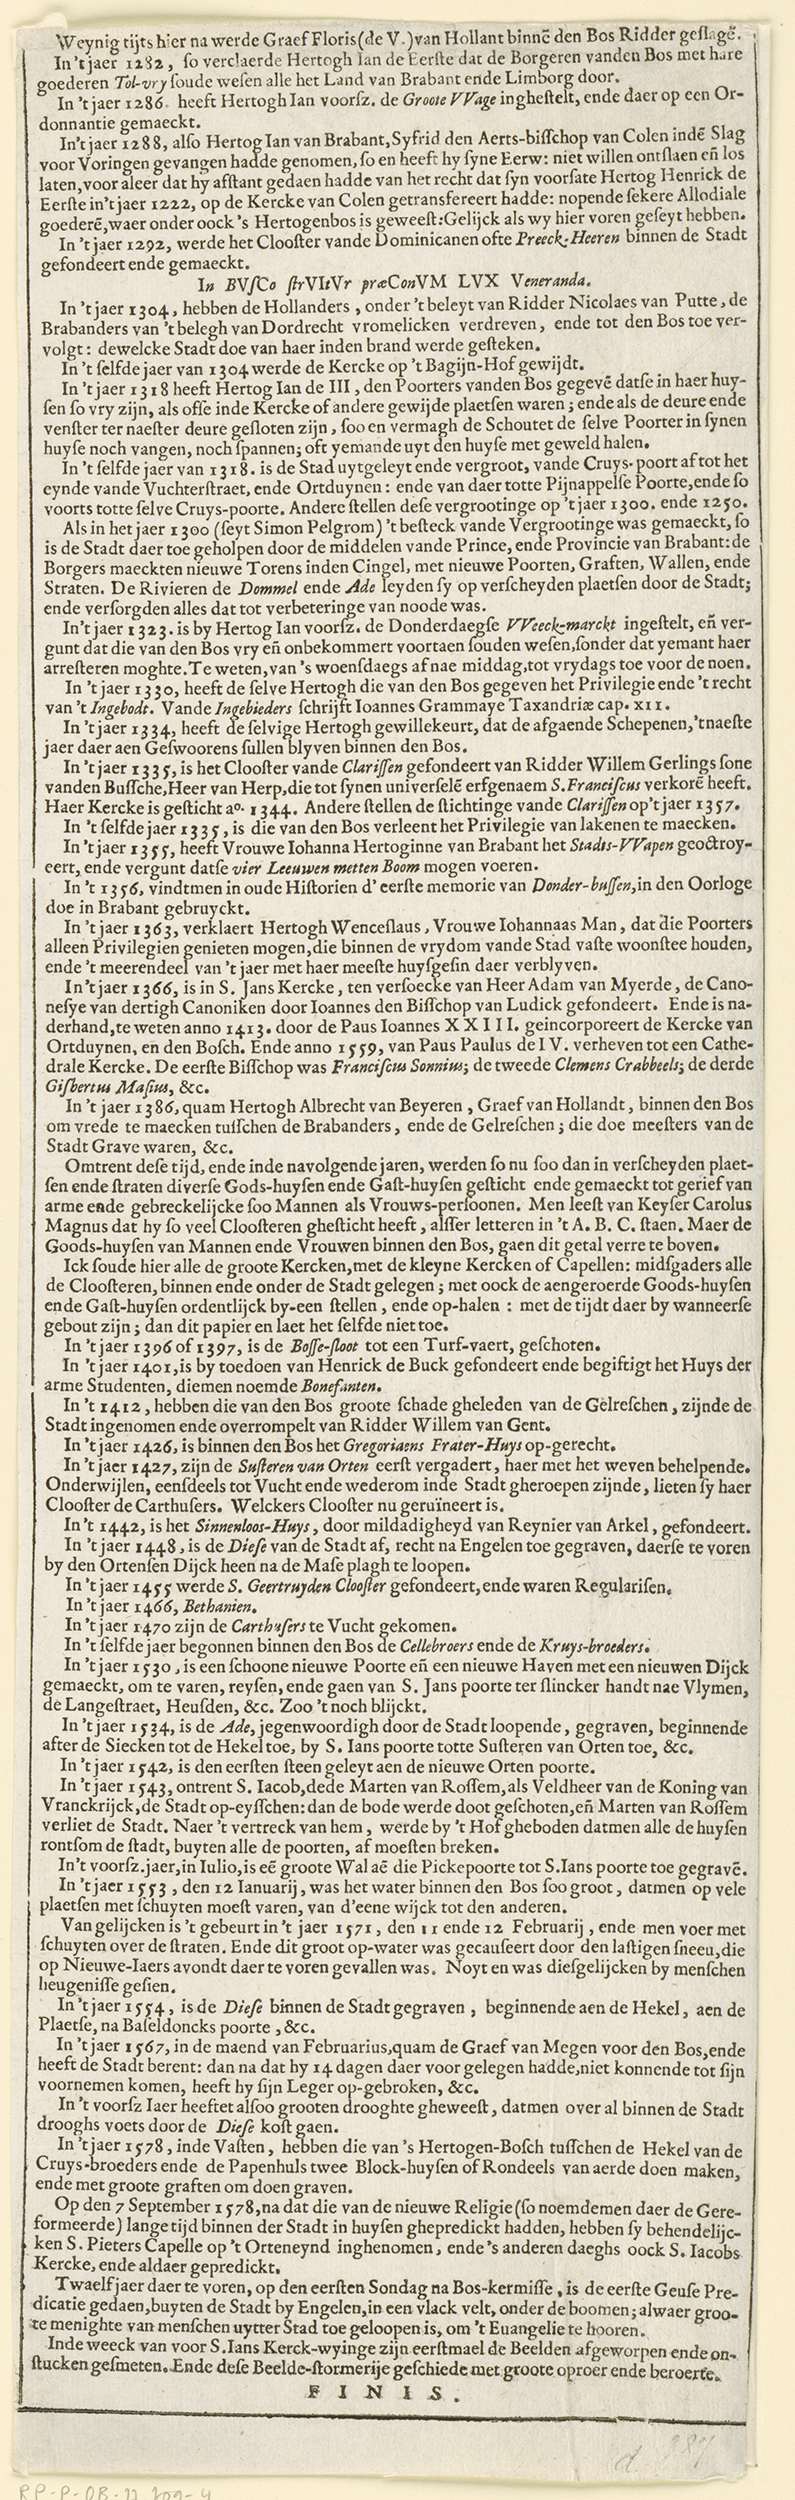 Weynig tijts hier na werde Graef Floris (de V.) van Hollant binnē den Bos Ridder geſlagē.
In 't jaer 1282, ſo verclaerde Hertogh Ian de Eerſte dat de Borgeren vanden Bos met hare
goederen Tol-vry ſoude weſen alle het Land van Brabant ende Limborg door.
In 't jaer 1286. heeft Hertogh Ian voorſz. de Groote VVage ingheſtelt, ende daer op een Or-
donnantie gemaeckt.
In't jaer 1288, alſo Hertog Ian van Brabant, Syfrid den Aerts-biſſchop van Colen indē Slag
voor Voringen gevangen hadde genomen, ſo en heeft hy ſyne Eerw: niet willen ontſlaen en̄ los
laten, voor aleer dat hy afſtant gedaen hadde van het recht dat ſyn voorſate Hertog Henrick de
Eerſte in't jaer 1222, op de Kercke van Colen getransfereert hadde: nopende ſekere Allodiale
goederē, waer onder oock 's Hertogenbos is geweeſt: Gelijck als wy hier voren geſeyt hebben.
In 't jaer 1292, werde het Clooſter vande Dominicanen ofte Preeck-Heeren binnen de Stadt
gefondeert ende gemaeckt.
In BVſCo ſtrVItVr præConVM LVX Veneranda.
In 't jaer 1304, hebben de Hollanders, onder 't beleyt van Ridder Nicolaes van Putte, de
Brabanders van 't belegh van Dordrecht vromelicken verdreven, ende tot den Bos toe ver-
volgt: dewelcke Stadt doe van haer inden brand werde geſteken.
In 't ſelfde jaer van 1304 werde de Kercke op 't Bagijn-Hof gewijdt.
In 't jaer 1318 heeft Hertog Ian de III, den Poorters vanden Bos gegevē datſe in haer huy-
ſen ſo vry zijn, als ofſe inde Kercke of andere gewijde plaetſen waren; ende als de deure ende
venſter ter naeſter deure geſloten zijn, ſoo en vermagh de Schoutet de ſelve Poorter in ſynen
huyſe noch vangen, noch ſpannen; oft yemande uyt den huyſe met geweld halen.
In 't ſelfde jaer van 1318. is de Stad uytgeleyt ende vergroot, vande Cruys-poort af tot het
eynde vande Vuchterſtraet, ende Ortduynen: ende van daer totte Pijnappelſe Poorte, ende ſo
voorts totte ſelve Cruys-poorte. Andere ſtellen deſe vergrootinge op 't jaer 1300. ende 1250.
Als in het jaer 1300 (ſeyt Simon Pelgrom) 't beſteck vande Vergrootinge was gemaeckt, ſo
is de Stadt daer toe geholpen door de middelen vande Prince, ende Provincie van Brabant: de
Borgers maeckten nieuwe Torens inden Cingel, met nieuwe Poorten, Graften, Wallen, ende
Straten. De Rivieren de Dommel ende Ade leyden ſy op verſcheyden plaetſen door de Stadt;
ende verſorgden alles dat tot verbeteringe van noode was.
In't jaer 1323. is by Hertog Ian voorſz. de Donderdaegſe VVeeck-marckt ingeſtelt, en̄ ver-
gunt dat die van den Bos vry en̄ onbekommert voortaen ſouden weſen, ſonder dat yemant haer
arreſteren moghte. Te weten, van 's woenſdaegs af nae middag, tot vrydags toe voor de noen.
In 't jaer 1330, heeft de ſelve Hertogh die van den Bos gegeven het Privilegie ende 't recht
van 't Ingebodt. Vande Ingebieders ſchrijft Ioannes Grammaye Taxandriæ cap. XII.
In 't jaer 1334, heeft de ſelvige Hertogh gewillekeurt, dat de afgaende Schepenen, 'tnaeſte
jaer daer aen Geſwoorens ſullen blyven binnen den Bos.
In 't jaer 1335, is het Clooſter vande Clariſſen gefondeert van Ridder Willem Gerlings ſone
vanden Buſſche, Heer van Herp, die tot ſynen univerſelē erfgenaem S. Franciſcus verkorē heeft.
Haer Kercke is geſticht aº. 1344. Andere ſtellen de ſtichtinge vande Clariſſen op't jaer 1357.
In 't ſelfde jaer 1335, is die van den Bos verleent het Privilegie van lakenen te maecken.
In 't jaer 1355, heeft Vrouwe Iohanna Hertoginne van Brabant het Stadts-VVapen geoctroy-
eert, ende vergunt datſe vier Leeuwen metten Boom mogen voeren.
In 't 1356, vindtmen in oude Hiſtorien d' eerſte memorie van Donder-buſſen, in den Oorloge
doe in Brabant gebruyckt.
In 't jaer 1363, verklaert Hertogh Wenceſlaus, Vrouwe Iohannaas Man, dat die Poorters
alleen Privilegien genieten mogen, die binnen de vrydom vande Stad vaſte woonſtee houden,
ende 't meerendeel van 't jaer met haer meeſte huyſgeſin daer verblyven.
In't jaer 1366, is in S. Jans Kercke, ten verſoecke van Heer Adam van Myerde, de Cano-
neſye van dertigh Canoniken door Ioannes den Biſſchop van Ludick gefondeert. Ende is na-
derhand, te weten anno 1413. door de Paus Ioannes XXIII. geincorporeert de Kercke van
Ortduynen, en den Boſch. Ende anno 1559, van Paus Paulus de IV. verheven tot een Cathe-
drale Kercke. De eerſte Biſſchop was Franciſcus Sonnius; de tweede Clemens Crabbeels; de derde
Giſbertus Maſius, &c.
In 't jaer 1386, quam Hertogh Albrecht van Beyeren, Graef van Hollandt, binnen den Bos
om vrede te maecken tuſſchen de Brabanders, ende de Gelreſchen; die doe meeſters van de
Stadt Grave waren, &c.
Omtrent deſe tijd, ende inde navolgende jaren, werden ſo nu ſoo dan in verſcheyden plaet-
ſen ende ſtraten diverſe Gods-huyſen ende Gaſt-huyſen geſticht ende gemaeckt tot gerief van
arme ende gebreckelijcke ſoo Mannen als Vrouws-perſoonen. Men leeſt van Keyſer Carolus
Magnus dat hy ſo veel Clooſteren gheſticht heeft, alſſer letteren in 't A. B. C. ſtaen. Maer de
Goods-huyſen van Mannen ende Vrouwen binnen den Bos, gaen dit getal verre te boven.
Ick ſoude hier alle de groote Kercken, met de kleyne Kercken of Capellen: midſgaders alle
de Clooſteren, binnen ende onder de Stadt gelegen; met oock de aengeroerde Goods-huyſen
ende Gaſt-huyſen ordentlijck by-een ſtellen, ende op-halen: met de tijdt daer by wanneerſe
gebout zijn; dan dit papier en laet het ſelfde niet toe.
In 't jaer 1396 of 1397, is de Boſſe-ſloot tot een Turf-vaert, geſchoten.
In 't jaer 1401, is by toedoen van Henrick de Buck gefondeert ende begiftigt het Huys der
arme Studenten, diemen noemde Bonefanten.
In 't 1412, hebben die van den Bos groote ſchade gheleden van de Gelreſchen, zijnde de
Stadt ingenomen ende overrompelt van Ridder Willem van Gent.
In 't jaer 1426, is binnen den Bos het Gregoriaens Frater-Huys op-gerecht.
In 't jaer 1427, zijn de Suſteren van Orten eerſt vergadert, haer met het weven behelpende.
Onderwijlen, eenſdeels tot Vucht ende wederom inde Stadt gheroepen zijnde, lieten ſy haer
Clooſter de Carthuſers. Welckers Clooſter nu geruïneert is.
In 't 1442, is het Sinnenloos-Huys, door mildadigheyd van Reynier van Arkel, gefondeert.
In 't jaer 1448, is de Dieſe van de Stadt af, recht na Engelen toe gegraven, daerſe te voren
by den Ortenſen Dijck heen na de Maſe plagh te loopen.
In 't jaer 1455 werde S. Geertruyden Clooſter gefondeert, ende waren Regulariſen.
In 't jaer 1466, Bethanien.
In 't jaer 1470 zijn de Carthuſers te Vucht gekomen.
In 't ſelfde jaer begonnen binnen den Bos de Cellebroers ende de Kruys-broeders.
In 't jaer 1530, is een ſchoone nieuwe Poorte en̄ een nieuwe Haven met een nieuwen Dijck
gemaeckt, om te varen, reyſen, ende gaen van S. Jans poorte ter ſlincker handt nae Vlymen,
de Langeſtraet, Heuſden, &c. Zoo 't noch blijckt.
In 't jaer 1534, is de Ade, jegenwoordigh door de Stadt loopende, gegraven, beginnende
after de Siecken tot de Hekel toe, by S. Ians poorte totte Suſteren van Orten toe, &c.
In 't jaer 1542, is den eerſten ſteen geleyt aen de nieuwe Orten poorte.
In 't jaer 1543, ontrent S. Iacob, dede Marten van Roſſem, als Veldheer van de Koning van
Vranckrijck, de Stadt op-eyſſchen: dan de bode werde doot geſchoten, en̄ Marten van Roſſem
verliet de Stadt. Naer 't vertreck van hem, werde by 't Hof gheboden datmen alle de huyſen
rontſom de ſtadt, buyten alle de poorten, af moeſten breken.
In't voorſz. jaer, in Iulio, is eē groote Wal aē die Pickepoorte tot S. Ians poorte toe gegravē.
In 't jaer 1553, den 12 Ianuarij, was het water binnen den Bos ſoo groot, datmen op vele
plaetſen met ſchuyten moeſt varen, van d'eene wijck tot den anderen.
Van gelijcken is 't gebeurt in 't jaer 1571, den 11 ende 12 Februarij, ende men voer met
ſchuyten over de ſtraten. Ende dit groot op-water was gecauſeert door den laſtigen ſneeu, die
op Nieuwe-Iaers avondt daer te voren gevallen was. Noyt en was dieſgelijcken by menſchen
heugeniſſe geſien.
In 't jaer 1554, is de Dieſe binnen de Stadt gegraven, beginnende aen de Hekel, aen de
Plaetſe, na Baſeldoncks poorte, &c.
In 't jaer 1567, in de maend van Februarius, quam de Graef van Megen voor den Bos, ende
heeft de Stadt berent: dan na dat hy 14 dagen daer voor gelegen hadde, niet konnende tot ſijn
voornemen komen, heeft hy ſijn Leger op-gebroken, &c.
In 't voorſz Iaer heeftet alſoo grooten drooghte gheweeſt, datmen over al binnen de Stadt
drooghs voets door de Dieſe koſt gaen.
In 't jaer 1578, inde Vaſten, hebben die van 's Hertogen-Boſch tuſſchen de Hekel van de
Cruys-broeders ende de Papenhuls twee Block-huyſen of Rondeels van aerde doen maken,
ende met groote graften om doen graven.
Op den 7 September 1578, na dat die van de nieuwe Religie (ſo noemdemen daer de Gere-
formeerde) lange tijd binnen der Stadt in huyſen ghepredickt hadden, hebben ſy behendelijc-
ken S. Pieters Capelle op 't Orteneynd inghenomen, ende 's anderen daeghs oock S. Iacobs
Kercke, ende aldaer gepredickt.
Twaelf jaer daer te voren, op den eerſten Sondag na Bos-kermiſſe, is de eerſte Geuſe Pre-
dicatie gedaen, buyten de Stadt by Engelen, in een vlack velt, onder de boomen; alwaer groo-
te menighte van menſchen uytter Stad toe geloopen is, om 't Euangelie te hooren.
Inde weeck van voor S. Ians Kerck-wyinge zijn eerſtmael de Beelden afgeworpen ende on-
ſtucken geſmeten. Ende deſe Beelde-ſtormerije geſchiede met groote oproer ende beroerte.
FINIS.
d 287
RP-P-OB-77.709-4